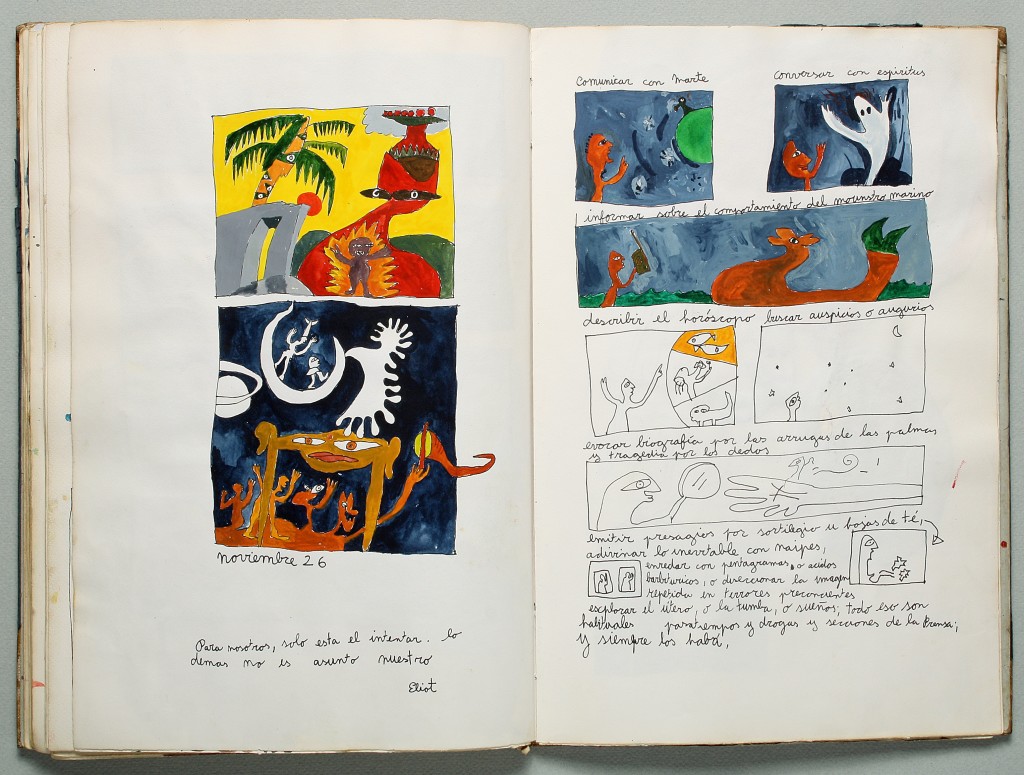 noviembre 26
Para nosotros, solo esta el intentar. lo
demas no es asunto nuestro
Eliot
Comunicar con Marte
Conversar con espiritus
informar sobre el comportamiento del mounstro marino
describir el horóscopo buscar auspicios o augurios
evocar biografía por las arrugas de las palmas
y tragedia por los dedos
emitir presagios por sortilegio u hojas de té,
adivinar lo inevitable con naipes,
enredar con pentagramas, o acidos
barbitúricos, o direccionar la imagen
repetida en terrores preconcientes
explorar el útero, o la tumba, o sueños; todo eso son
habituales pasatiempos y drogas y secciones de la Prensa;
y siempre los habrá,